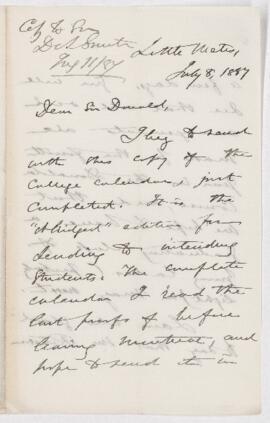 Little Metis,
July 8, 1887
Dear Sir Donald,
I beg to send
with this copy of the
College calendar, just
completed. It is the
"abridged" edition for
sending to intending
students. The complete
calendar I read the
last proofs of before
leaving Montreal, and
hope to send it in